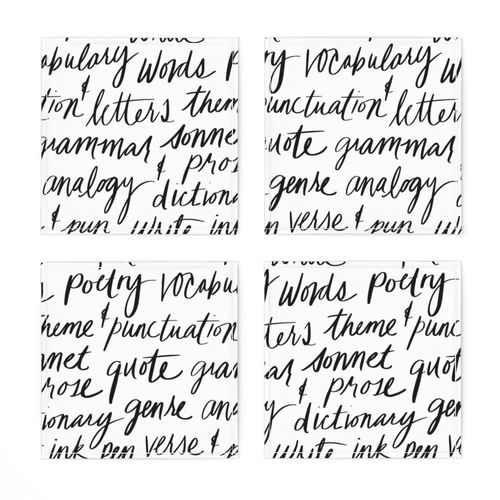 abulary words p
tion & letters them
grammar sonne
analogy & pros
dictiona
& pun write ink
ry vocabulary w
unctuation & letter
uote grammar
genre analogy &
d
n verse & pun write
s poetry vocabu
heme & punctuation
nnet quote gra
rose
ionary genre ana
ink pen verse & p
y words poetry
ters theme & punc
ar sonnet quot
& prose
y dictionary ge
write ink pen